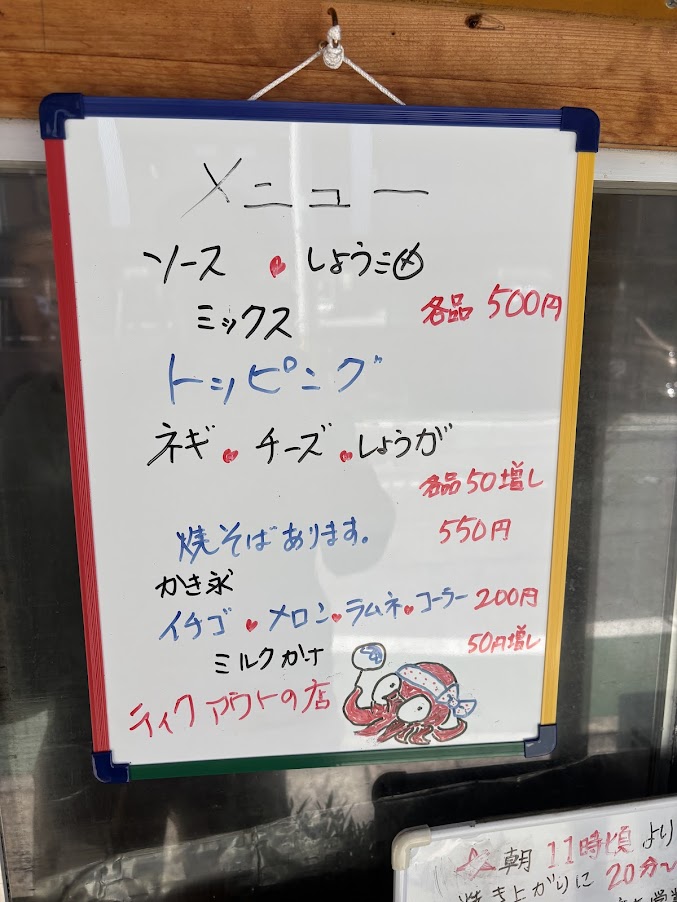 メニュー
ソース ♥ しょうミ〆
ミックス
各品 500円
トッピング
ネギ ♥ チーズ ♥ しょうが
各品50増し
焼そばあります。 550円
かき氷
イチゴ ♥ メロン ♥ ラムネ ♥ コーラー 200円
ミルクかけ 50円増し
ティクアウトの店
☆朝 11時頃より
焼き上がりに 20分~